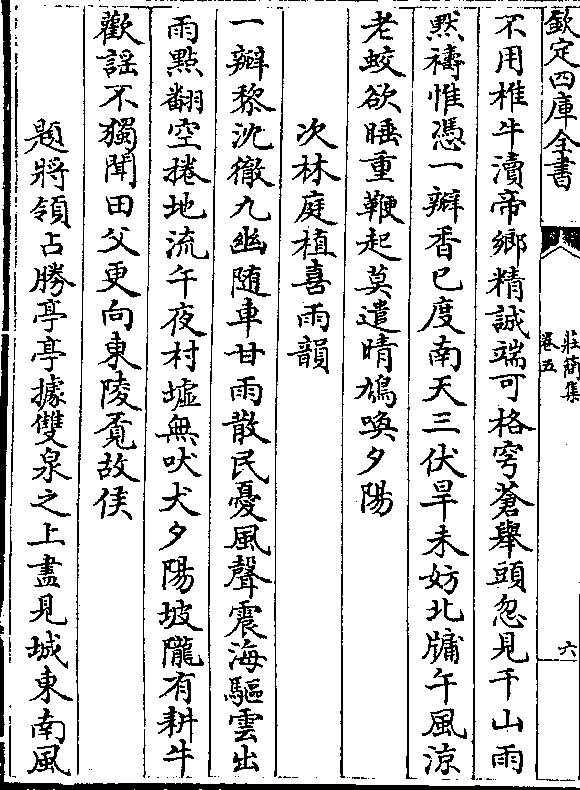 欽定四庫全書
莊簡集
卷五
六
不用椎牛瀆帝鄉精誠端可格穹蒼舉頭忽見千山雨
黙禱惟憑一瓣香已度南天三伏旱未妨北牖午風涼
老蛟欲睡重鞭起莫遣晴鳩喚夕陽
次林庭植喜雨韻
一瓣黎沈徹九幽随車甘雨散民憂風聲震海驅雲出
雨點翻空捲地流午夜村墟無吠犬夕陽坡隴有耕牛
歡謡不獨聞田父更向東陵覔故侯
題將領占勝亭亭據雙泉之上盡見城東南風